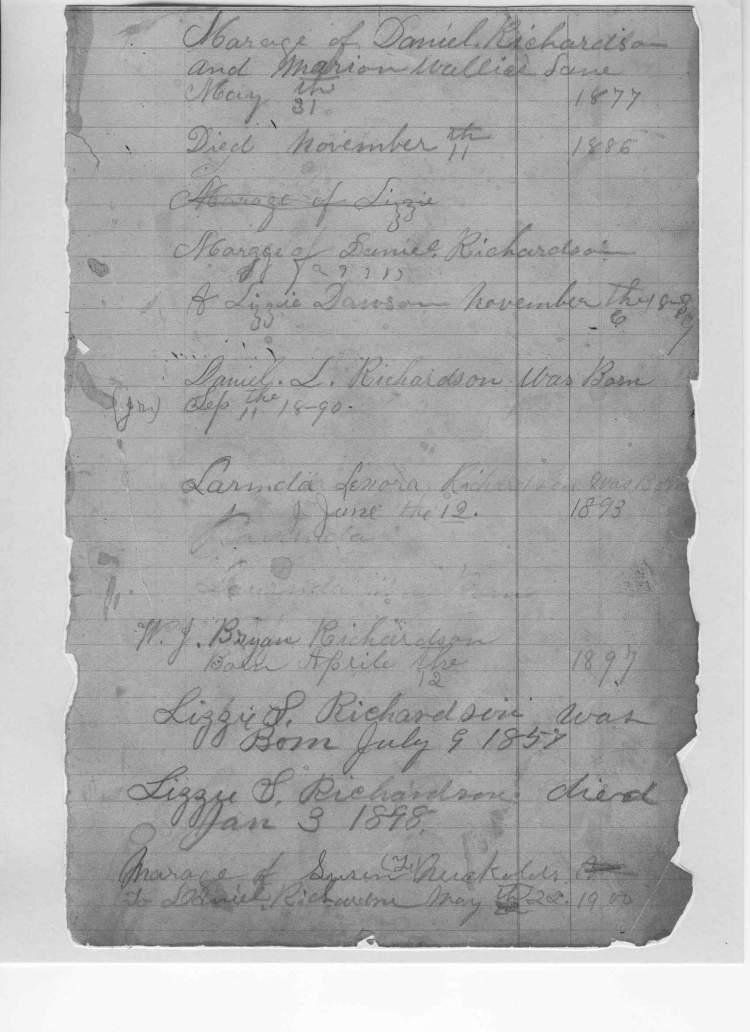 Marage of Daniel Richardson
and Marion Wallice Lane
May 31 th 1877
Died November 11 th 1886
Marage of Lizzie
Marage of Daniel Richardson
& Lizzie Dawson November the 6 18
Daniel. L. Richardson Was Born
(Jr.) Sep the 11 18-90.
Larinda Lenora Richardson was Born
June the 12. 1893
W. J. Bryan Richardson
Born Aprile the 12 1897
Lizzie S. Richardson was
Born July 9 1857
Lizzie S. Richardson died
Jan 3 1898.
Marage of
to Daniel Richardson May 22. 1900